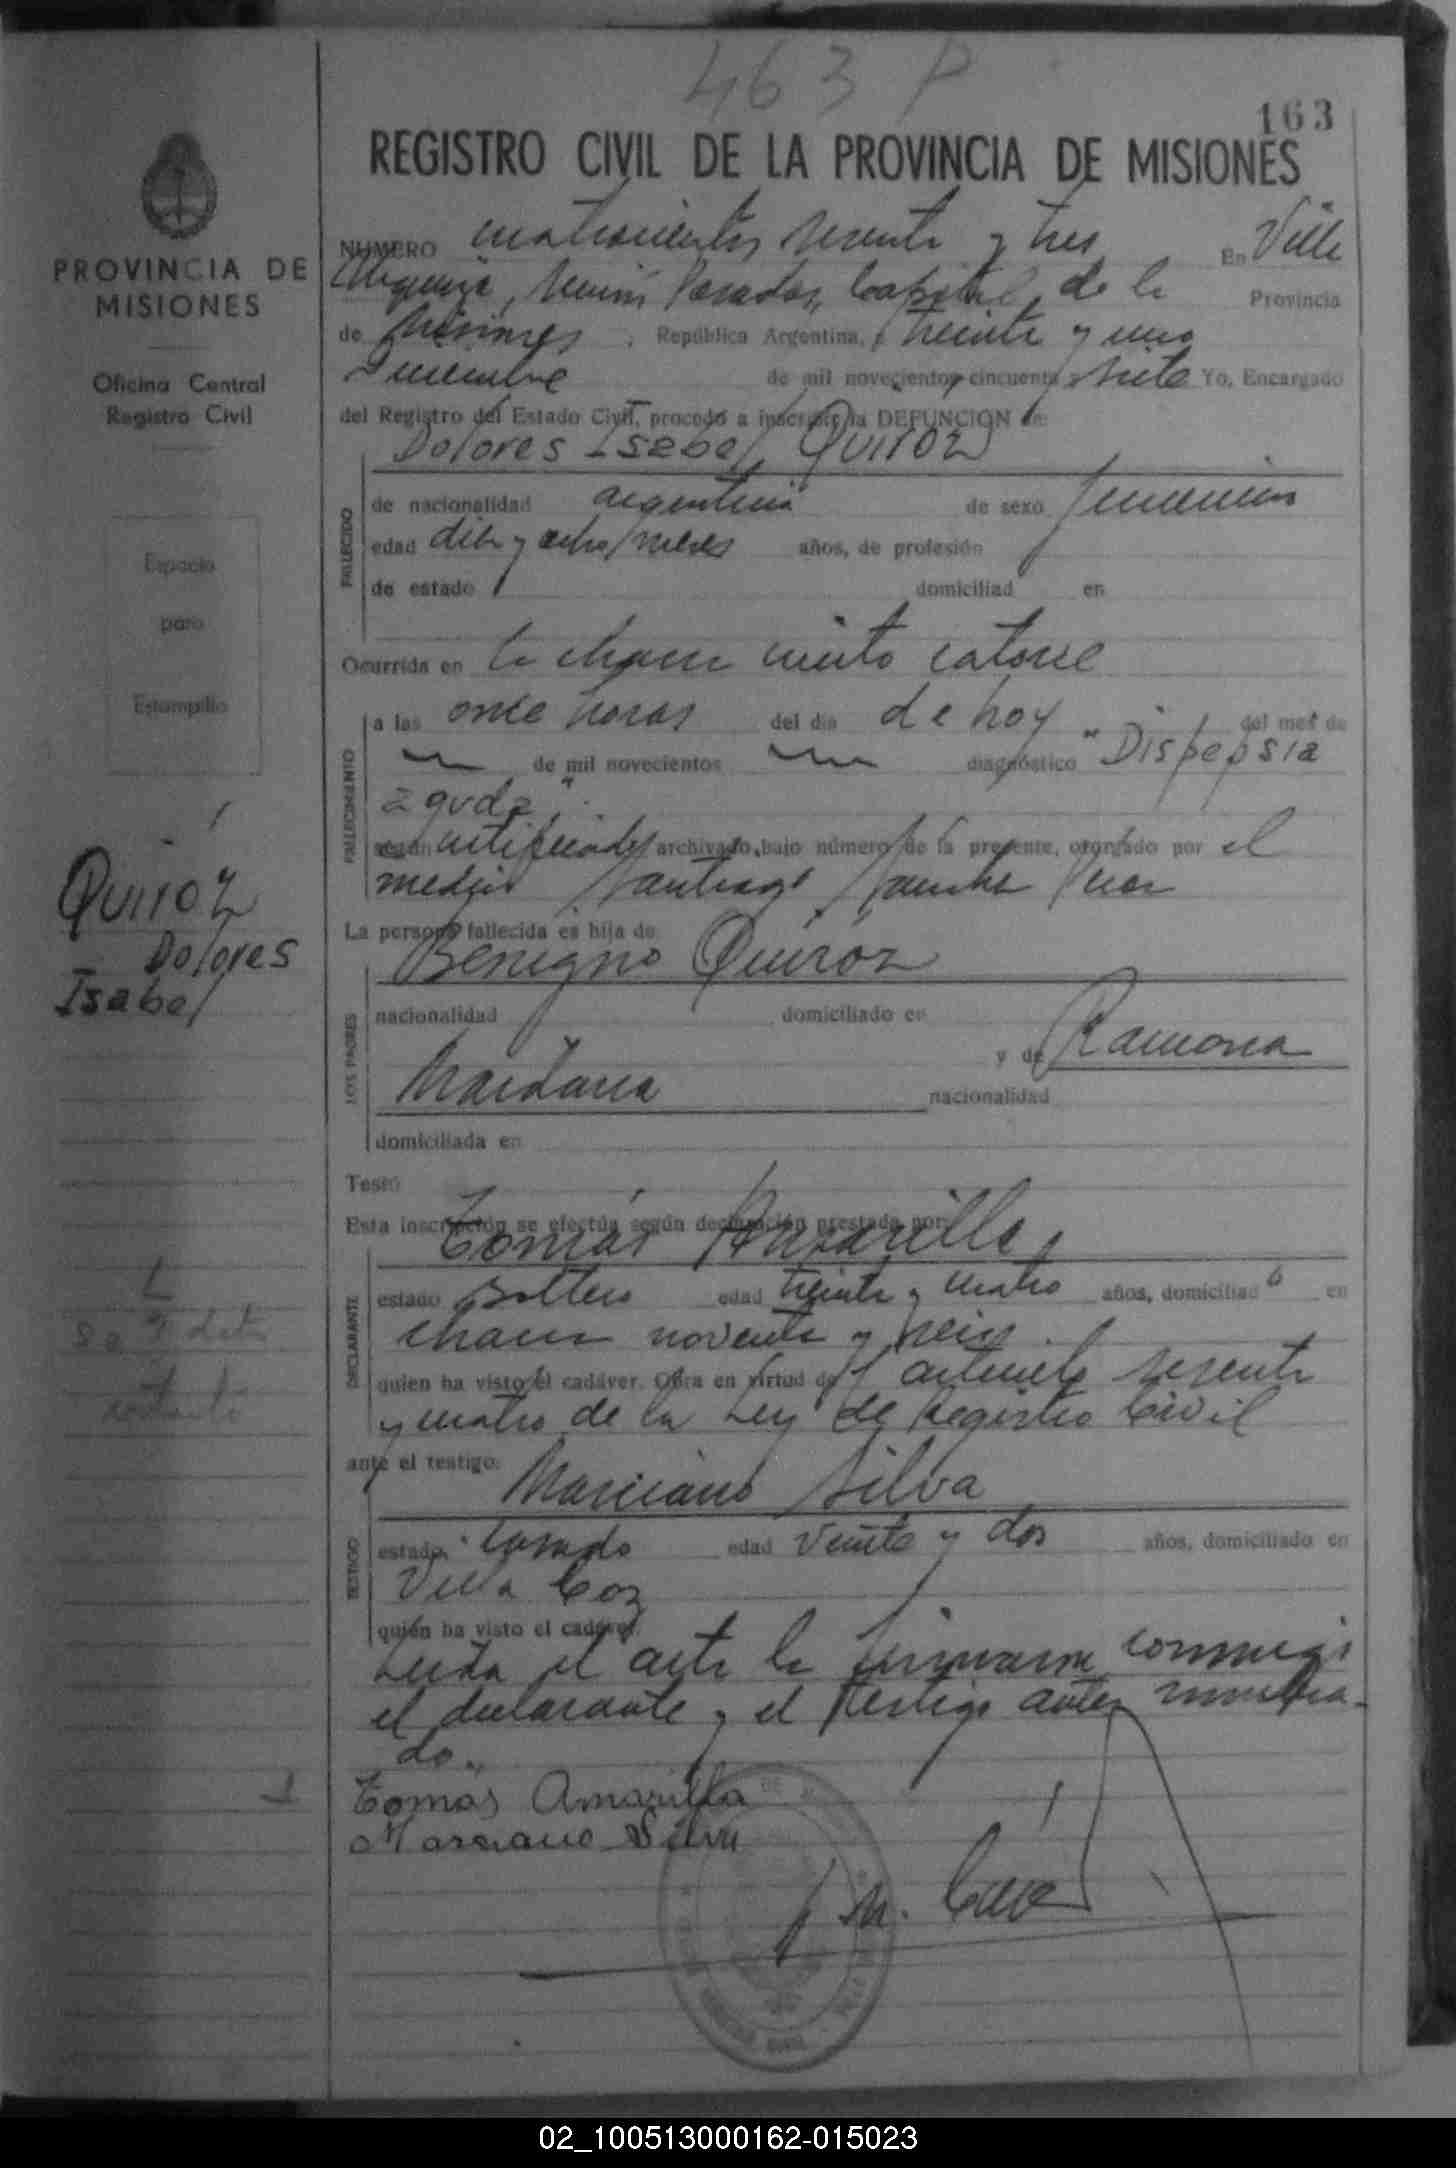 463 P
163
REGISTRO CIVIL DE LA PROVINCIA DE MISIONES
PROVINCIA DE
MISIONES
Oficina Central
Registro Civil
Espacio
para
Estampilla
Quiróz
Dolores
Isabel
NUMERO cuatrocientos sesenta y tres En Villa
Urquiza, Posadas, Capital de la Provincia
de Misiones, República Argentina, a treinta y uno
Diciembre de mil novecientos cincuenta y siete Yo, Encargado
del Registro del Estado Civil, procedo a inscribir la DEFUNCION de:
Dolores Isabel Quiróz
FALLECIDO
de nacionalidad argentina de sexo femenino
edad diez y ocho meses años, de profesión
de estado domiciliad en
Ocurrida en la chacra ciento catorce
FALLECIMIENTO
a las once horas del día de hoy del mes de
de mil novecientos diagnóstico "Dispepsia
aguda".
según certificado archivado bajo número de la presente, otorgado por el
medico Santiago
La persona fallecida es hija de
Benigno Quiróz
LOS PADRES
nacionalidad domiciliado en
y de Ramona
Maidana nacionalidad
domiciliada en
Testó
Esta inscripción se efectúa según declaración prestada por:
Tomás Amarilla,
DECLARANTE
estado soltero edad treinta y cuatro años, domiciliado en
chacra noventa y seis.
quien ha visto el cadáver. Obra en virtud del artículo sesenta
y cuatro de la Ley de Registro Civil
ante el testigo:
Marciano Silva
TESTIGO
estado casado edad veinte y dos años, domiciliado en
Villa Coz
quién ha visto el cadáver.
Leida el acta la firmaron conmigo
el declarante y el testigo antes nombra-
do.
Tomás Amarilla
Marciano Silva
02_100513000162-015023